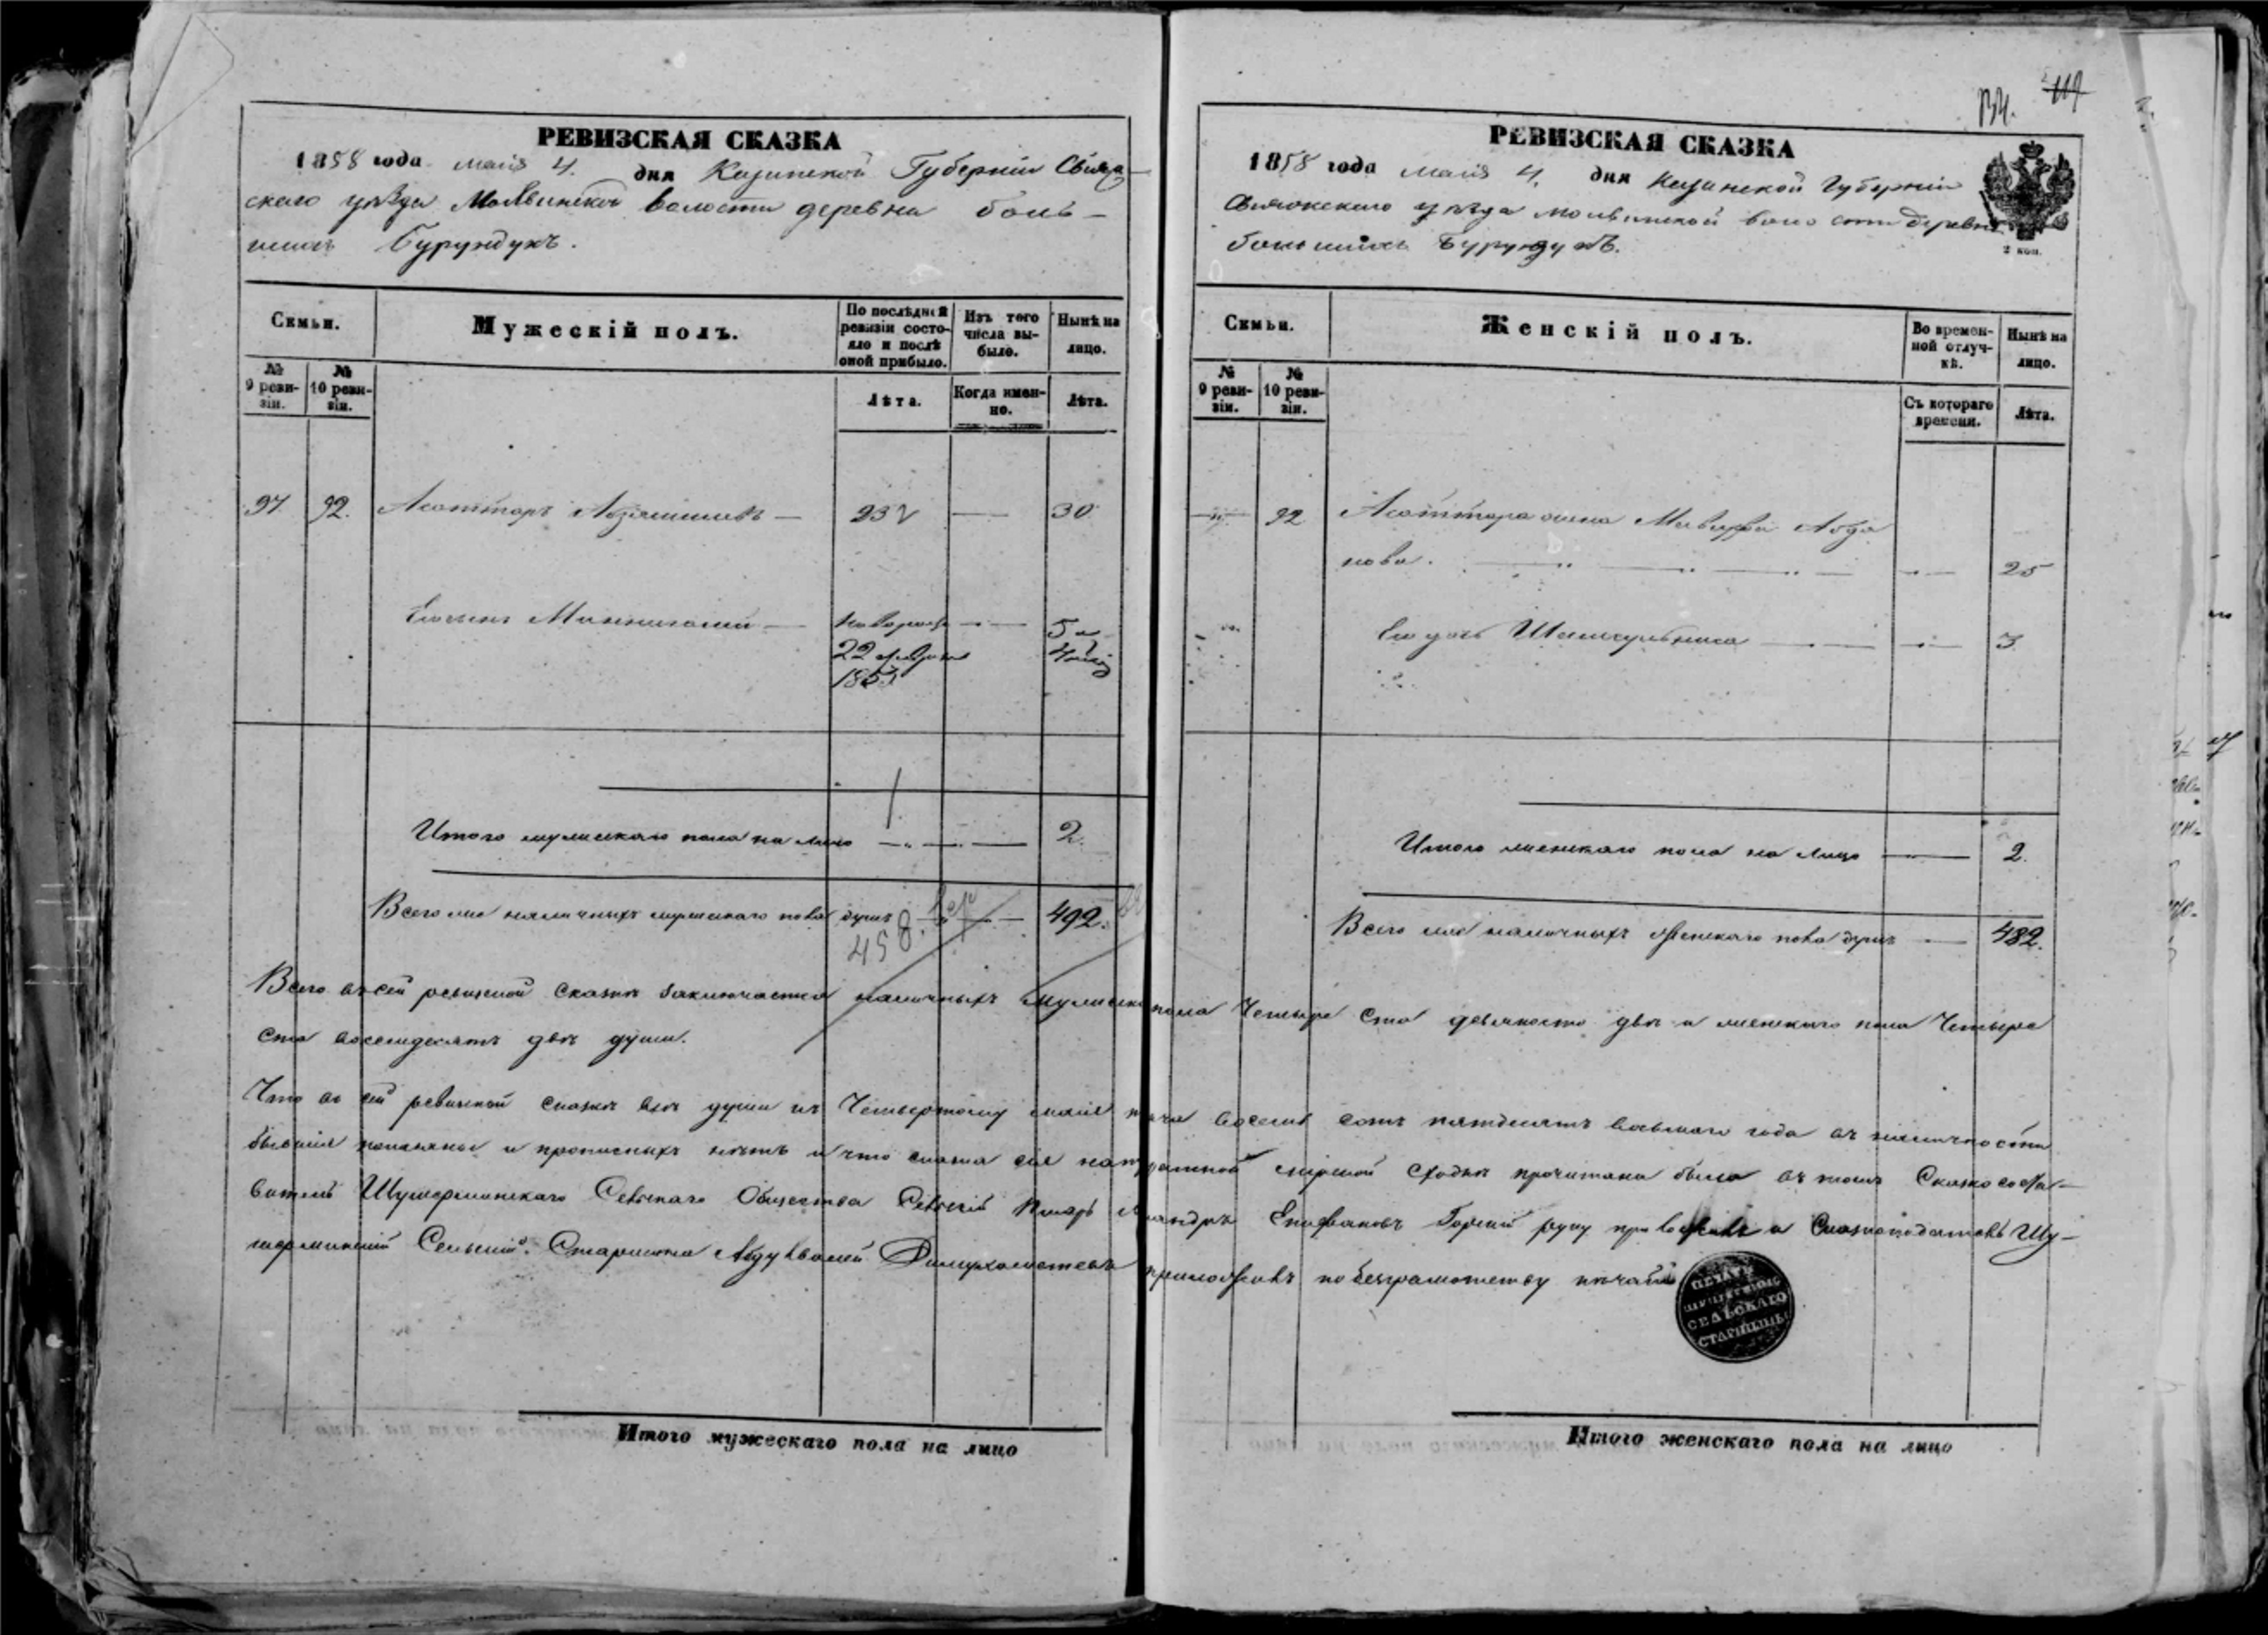 РЕВИЗСКАЯ СКАЗКА
1858 года маія 4. дня Казанской Губерніи Свіяж-
скаго уѣзда Молвинской волости деревни боль-
шихъ Бурундукъ.
Семьи.
Мужескій полъ.
По послѣдней ревизіи состояло и послѣ оной прибыло.
Изъ того числа выбыло.
Нынѣ на лицо.
№ 9 ревизіи.
№ 10 ревизіи.
Лѣта.
Когда именно.
Лѣта.
97. 92. 23 — 30
Минниголей — новорожд — 5 и
22
185
Итого мужескаго пола на лицо — 2.
Всего же наличныхъ мужескаго пола душъ — 492.
458.
РЕВИЗСКАЯ СКАЗКА
1858 года маія 4. дня Казанской Губерніи
Свіяжскаго уѣзда Молвинской волости деревни
большихъ Бурундукъ.
2 коп.
Семьи.
Женскій полъ.
Во временной отлучкѣ.
Нынѣ на лицо.
№ 9 ревизіи.
№ 10 ревизіи.
Съ котораго времени.
Лѣта.
92 жена
нова. — 25
Его дочь — 3
Итого женскаго пола на лицо — 2.
Всего же наличныхъ женскаго пола душъ — 482.
Всего въ сей ревизской сказкѣ заключается наличныхъ мужеска пола Четыре ста девяносто двѣ и женскаго пола Четыре
ста восемьдесятъ двѣ души.
Что въ сей ревизской сказкѣ всѣ души къ Четвертому маія тысяча восемь сотъ пятьдесятъ восьмаго года въ наличности
бывшія показаны и прописныхъ нѣтъ и что сказка сія на мірской сходкѣ прочитана была въ томъ Сказкососта-
витель Сельскаго Общества Сельскій Писарь Епифановъ Горскій руку приложилъ а Сказкоподатель Шу-
Сельскій Старшина приложилъ по безграмотству печать
ПЕЧАТЬ
СЕЛЬСКАГО
СТАРШИНЫ
Итого мужескаго пола на лицо
Итого женскаго пола на лицо